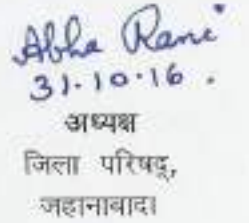 Abha Rani
31.10.16.
अध्यक्ष
जिला परिषद्,
जहानाबाद।